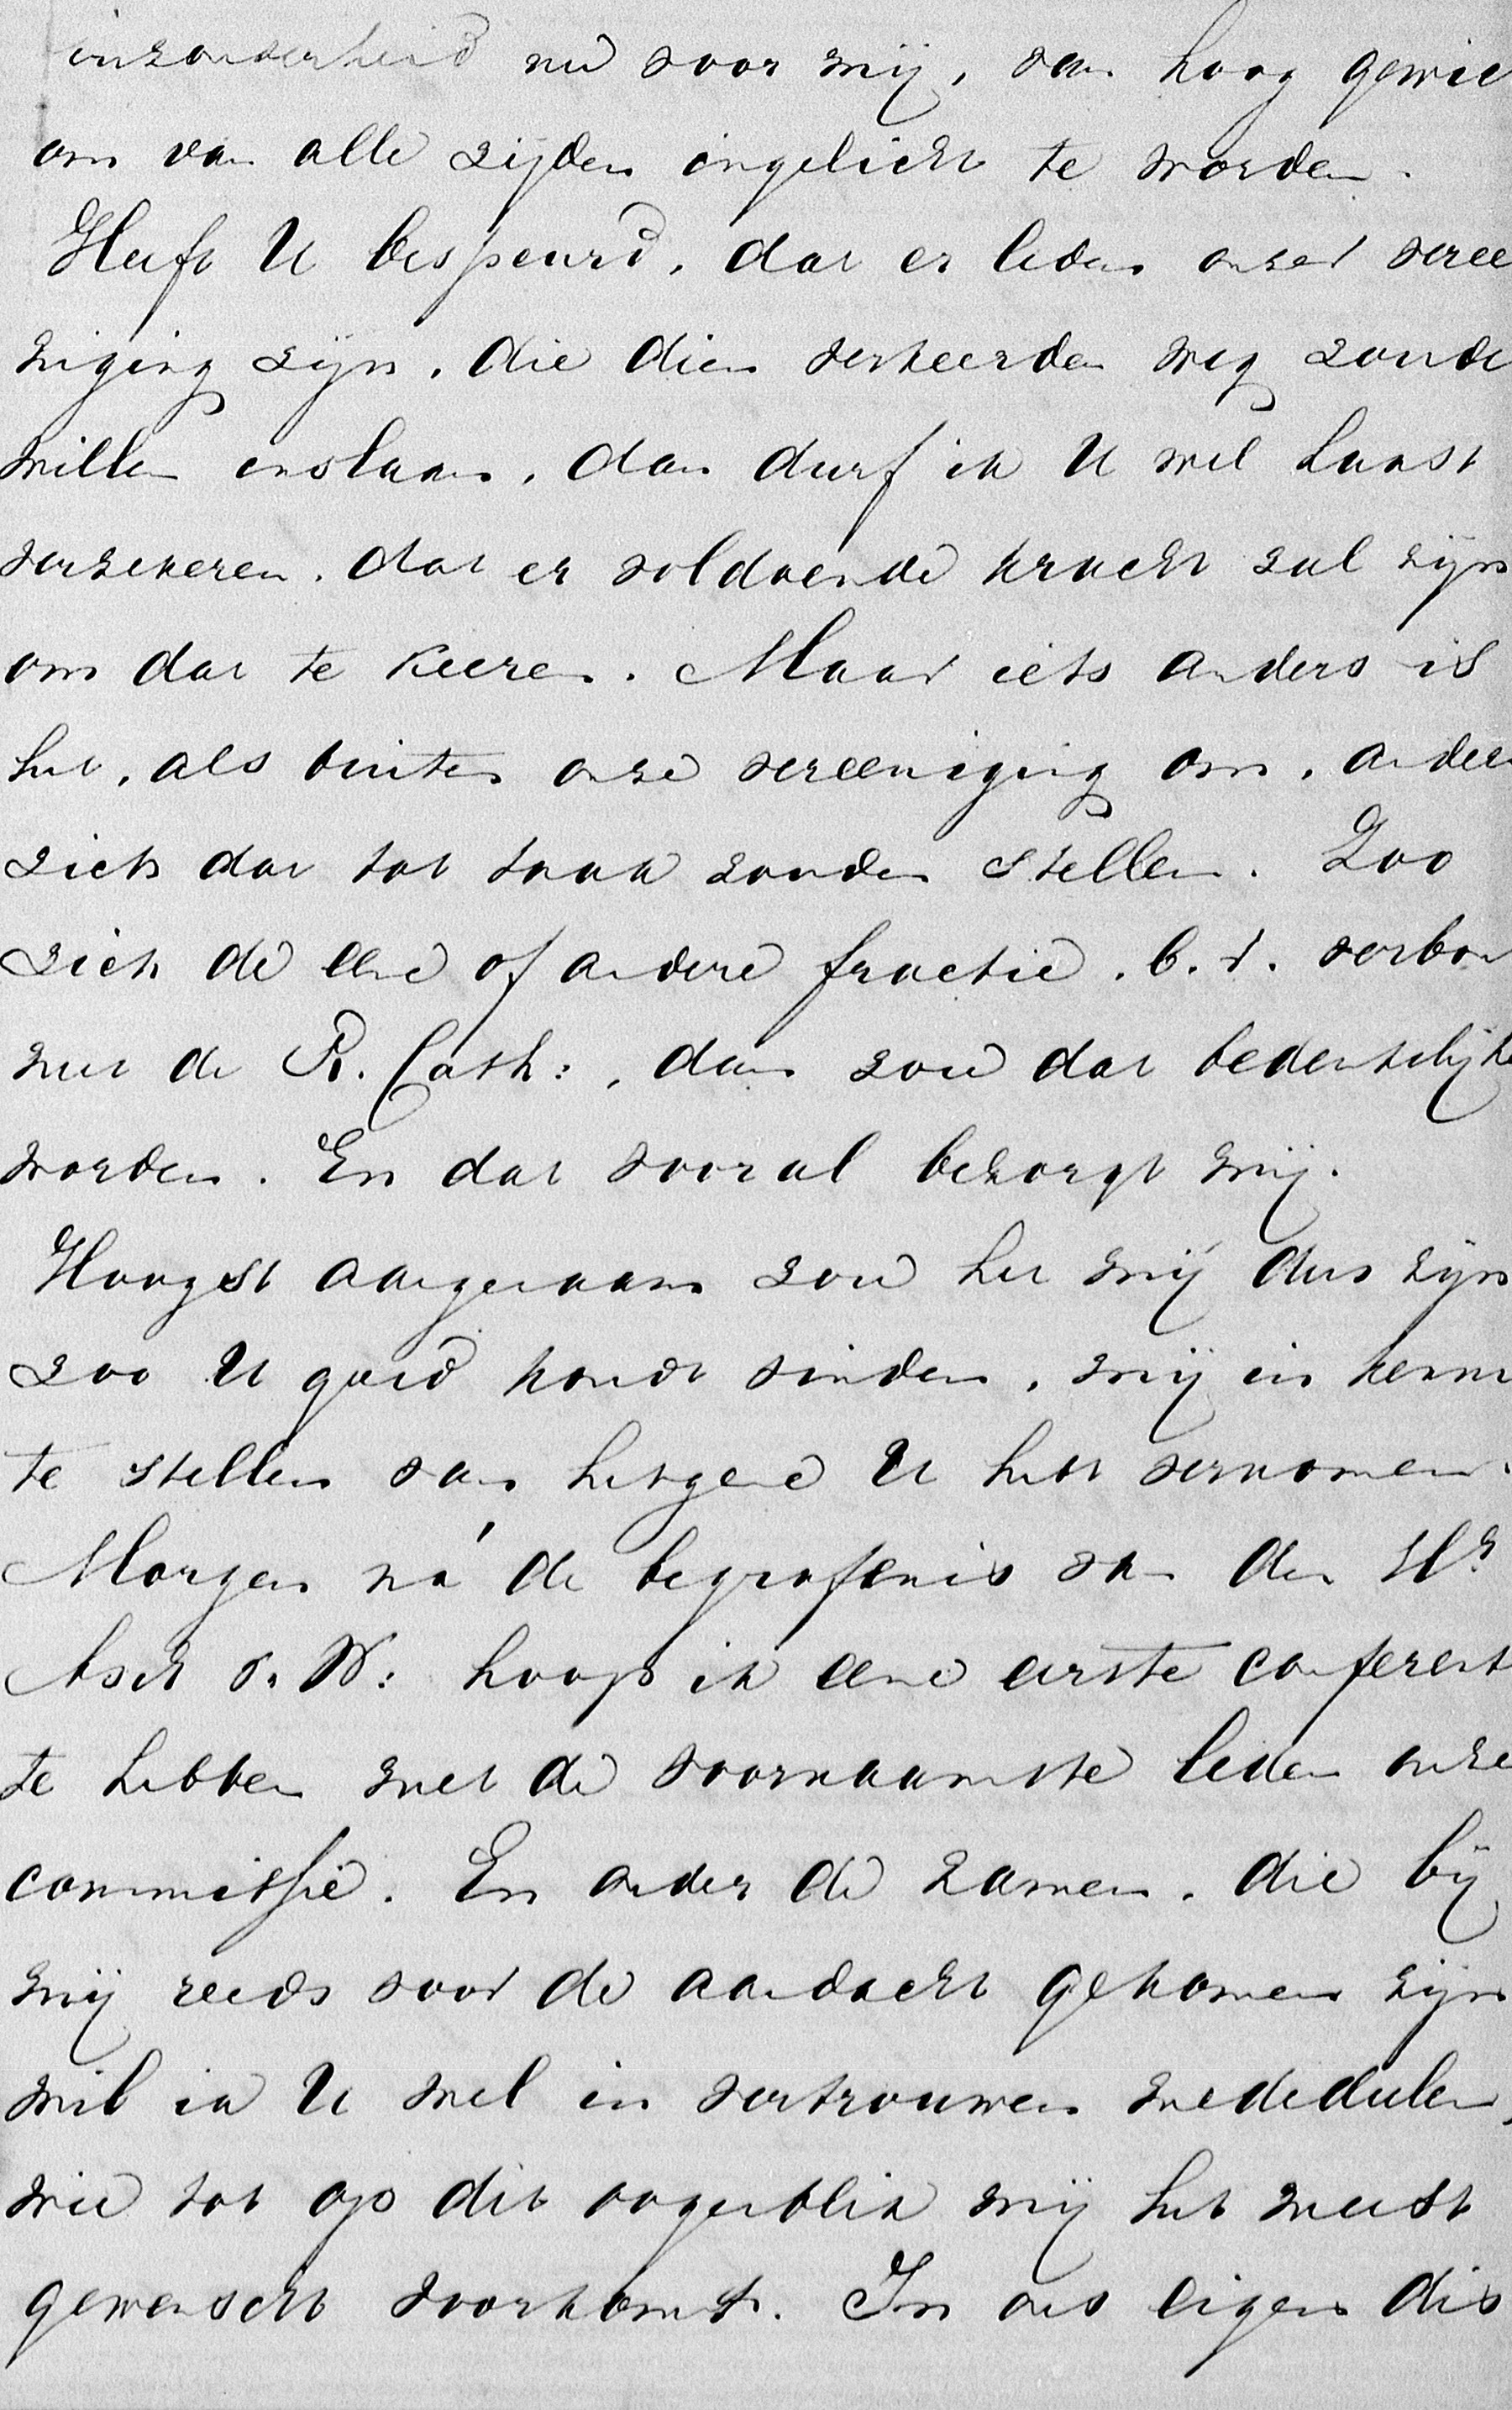 inzonderheid nu voor mij, van hoog gewic
om van alle zijden ingelicht te worden.
Heeft U bespeurd, dat er leden onzer veree
niging zijn, die dien verkeerden weg zoude
willen inslaan, dan durf ik U wel haast
verzekeren, dat er voldoende kracht zal zijn
om dat te keeren. Maar iets anders is
het, als buiten onze vereeniging om, andere
zich dat tot taak zouden stellen. Zoo
zich de eene of andere fractie, b.v. verbon
met de R. Cath:, dan zou dat bedenkelijke
worden. En dat vooral bezorgt mij.
Hoogst aangenaam zou het mij dus zijn
zoo U goed kondt vinden, mij in kenni
te stellen van hetgene U hebt vernomen.
Morgen ná de begrafenis van den Hr
Asch v. W: hoop ik eene eerste conferent
te hebben met de voornaamste leden onze
commissie. En onder de namen, die bij
mij reeds voor de aandacht gekomen zijn
wil ik U wel in vertrouwen mededeelen,
wie tot op dit oogenblik mij het meest
gewenscht voorkomt. In ons eigen dis